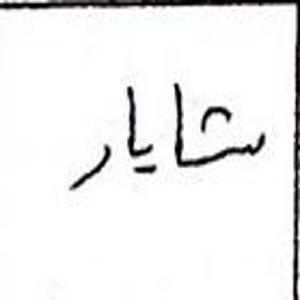 شایار